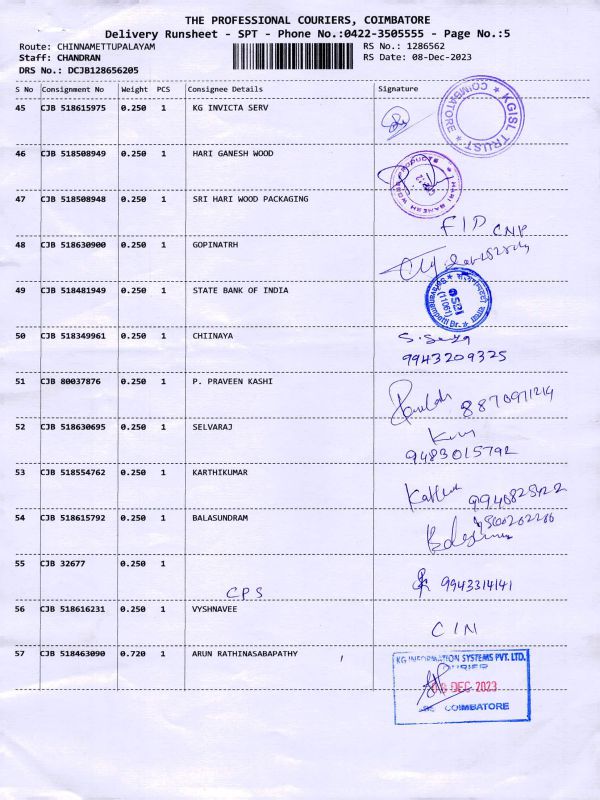 THE PROFESSIONAL COURIERS, COIMBATORE
Delivery Runsheet - SPT - Phone No.:0422-3505555 - Page No.:5
Route: CHINNAMETTUPALAYAM RS No.: 1286562
Staff: CHANDRAN RS Date: 08-Dec-2023
DRS No.: DCJB128656205
S No Consignment No Weight PCS Consignee Details Signature
45 CJB 518615975 0.250 1 KG INVICTA SERV
KGISL TRUST COIMBATORE
46 CJB 518508949 0.250 1 HARI GANESH WOOD
HARI GANESH WOOD PRODUCTS
47 CJB 518508948 0.250 1 SRI HARI WOOD PACKAGING
FID CNP
48 CJB 518630900 0.250 1 GOPINATRH
49 CJB 518481949 0.250 1 STATE BANK OF INDIA
SBI
(11061)
Saravanampatti Br.
50 CJB 518349961 0.250 1 CHIINAYA
9943209325
51 CJB 80037876 0.250 1 P. PRAVEEN KASHI
8870971214
52 CJB 518630695 0.250 1 SELVARAJ
9483015792
53 CJB 518554762 0.250 1 KARTHIKUMAR
54 CJB 518615792 0.250 1 BALASUNDRAM
55 CJB 32677 0.250 1
CPS 9943314141
56 CJB 518616231 0.250 1 VYSHNAVEE
CIN
57 CJB 518463090 0.720 1 ARUN RATHINASABAPATHY
KG INFORMATION SYSTEMS PVT. LTD.
COURIER
08 DEC 2023
COIMBATORE